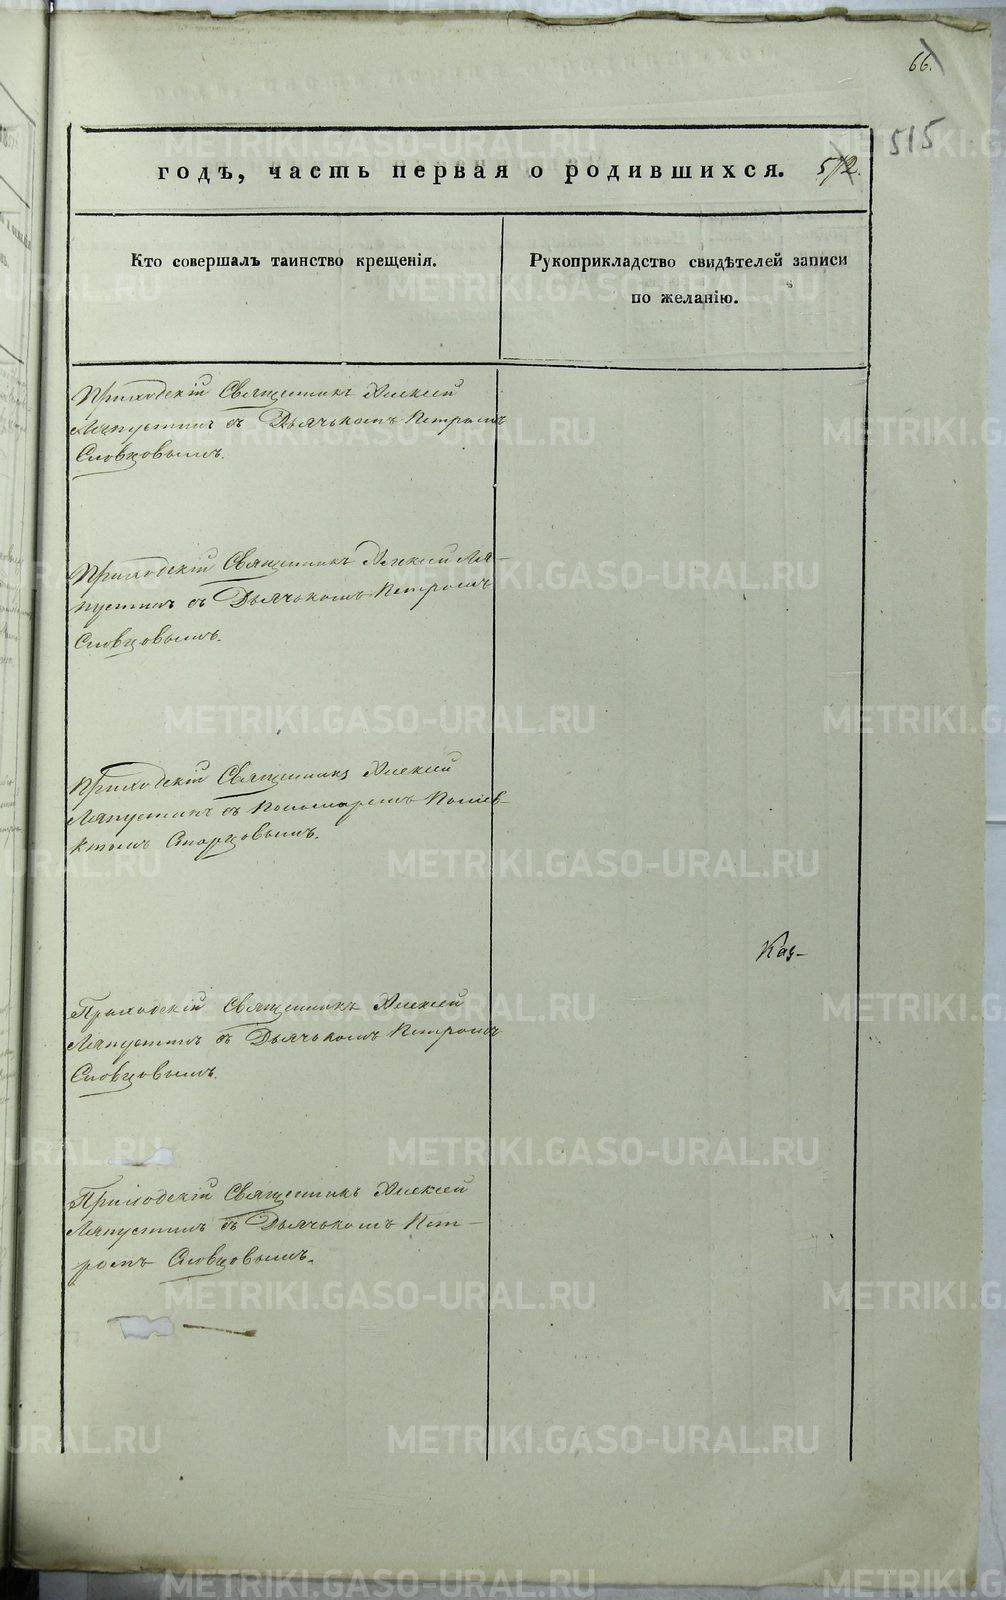 66.
515
годъ, часть первая о родившихся. 512.
Кто совершалъ таинство крещенія.
Рукоприкладство свидѣтелей записи
по желанію.
Приходскій Священникъ Алексей
Ляпустинъ съ Дьячькомъ Петромъ
Словцовымъ.
Приходскій Священникъ Алексей Ля-
пустинъ съ Дьячькомъ Петромъ
Словцовымъ.
Приходскій Священникъ Алексей
Ляпустинъ съ Пономаремъ Полиев-
ктомъ Старцовымъ.
Каз-
Приходскій Священникъ Алексей
Ляпустинъ съ Дьячькомъ Петромъ
Словцовымъ.
Приходскій Священникъ Алексей
Ляпустинъ съ Дьячькомъ Пет-
ромъ Словцовымъ.
METRIKI.GASO-URAL.RU